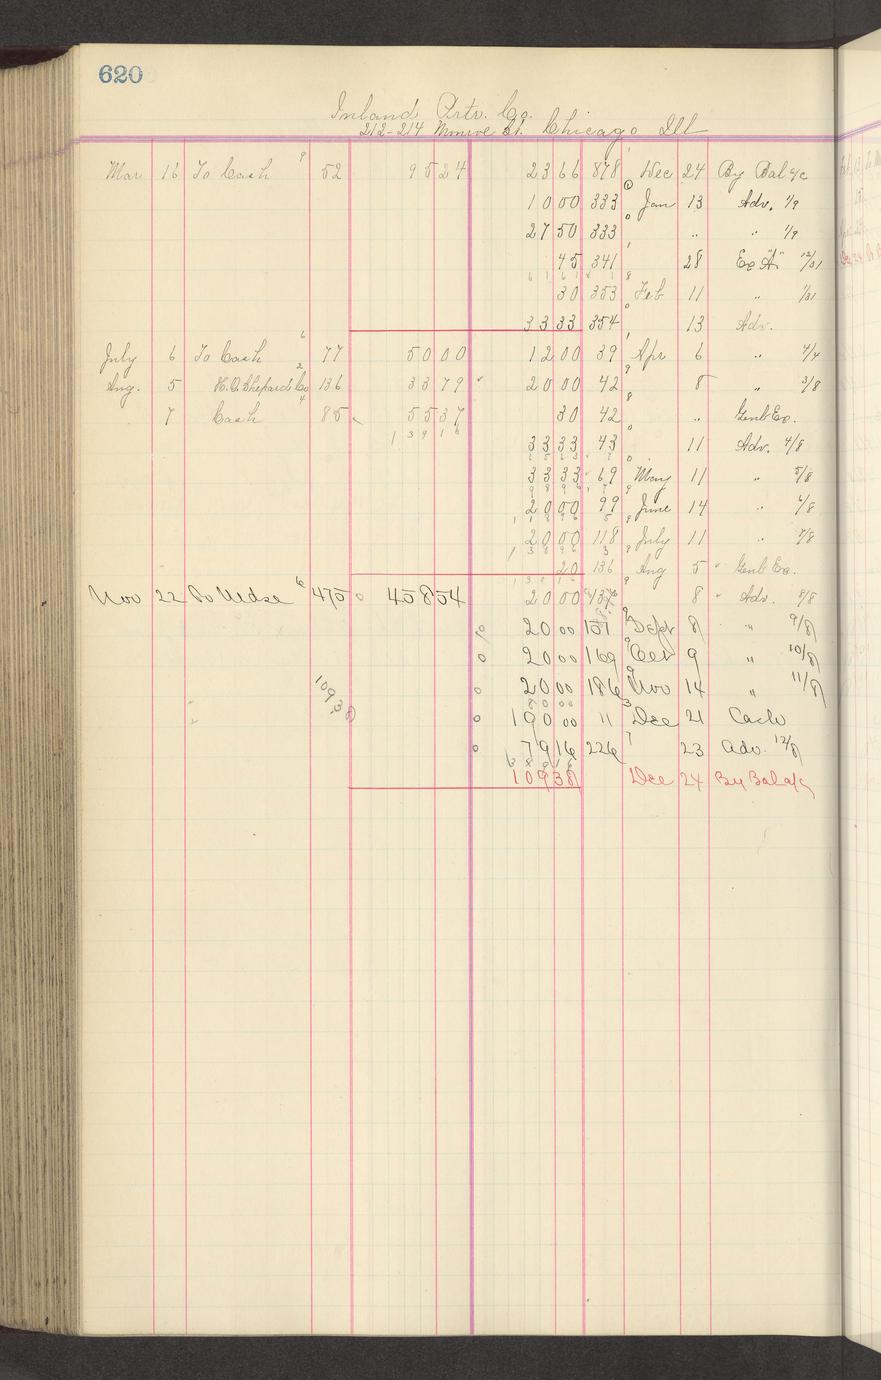 620
Inland Prtr. Co.
212-214 Monroe St. Chicago Ill
Mar 16 To Cash 9 52 95 24 23 66 878 Dec 24 By Bal a/c
10 00 333 Jan 13 Adv. 1/9
27 50 333 " " 1/9
45 341 28 Ex "A" 12/31
6 1 6 1
30 353 Feb 11 " 1/31
33 33 354 13 Adv.
July 6 To Cash 6 77 50 00 12 00 39 Apr 6 " 4/4
Aug. 5 H.O. Shepard Co 2 136 33 79 20 00 42 8 " 3/8
7 Cash 4 85 55 37 30 42 " Genl Ex.
1 3 9 1 6
33 33 43 11 Adv. 4/8
33 33 69 May 11 " 5/8
9 8 9 6
20 00 99 June 14 " 6/8
1 1 8 9 6
20 00 118 July 11 " 7/8
1 3 8 9 6
20 136 Aug 5 Genl Ex.
1 3 9 1 6
Nov 22 To Mdse 6 475 458 54 20 00 137 8 " Adv. 8/8
20 00 151 Sept 8 " 9/8
20 00 169 Oct 9 " 10/8
20 00 186 Nov 14 " 11/8
109 38
8 0 0 0
190 00 11 Dec 21 Cash
79 16 226 23 Adv. 12/8
109 38 Dec 24 By Bal a/c